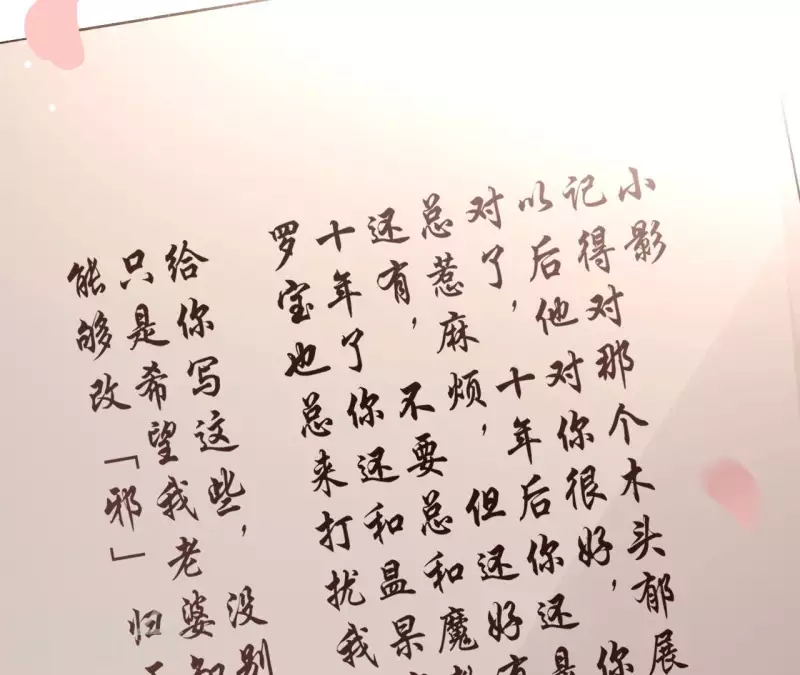 小影
记得对那个木头郁展
以后他对你很好，你
对了，十年后你还是
总惹麻烦，但还好有
还有，不要总和魔
十年了你还和昷果
罗宝也总来打扰我
给你写这些，没别
只是希望我老婆
能够改「邪」归